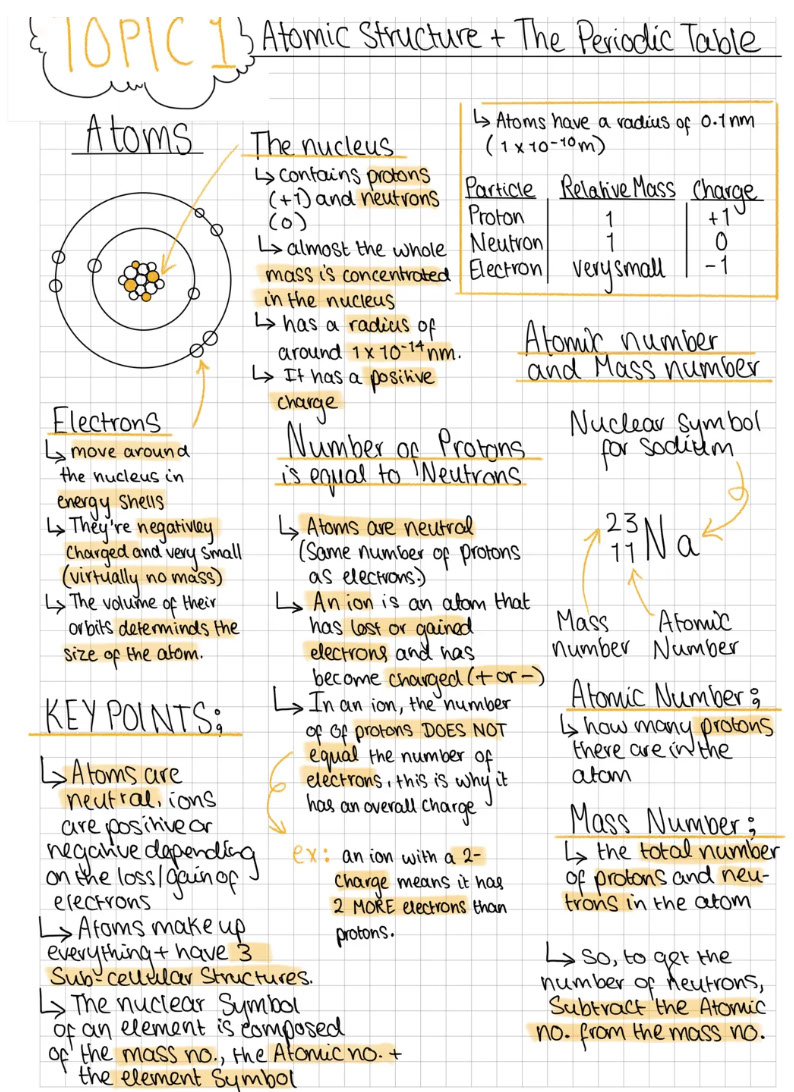 TOPIC 1
Atomic Structure + The Periodic Table
Atoms
The nucleus
↳ contains protons
(+1) and neutrons
(0)
↳ almost the whole
mass is concentrated
in the nucleus
↳ has a radius of
around 1 x 10⁻¹⁴ nm.
↳ It has a positive
charge
↳ Atoms have a radius of 0.1nm
(1 x 10⁻¹⁰m)
Particle Relative Mass Charge
Proton 1 +1
Neutron 1 0
Electron very small -1
Electrons
↳ move around
the nucleus in
energy shells
↳ They're negativley
charged and very small
(virtually no mass)
↳ The volume of their
orbits determinds the
size of the atom.
KEY POINTS;
↳ Atoms are
neutral, ions
are positive or
negative depending
on the loss/gain of
electrons
↳ Atoms make up
everything + have 3
Sub-cellular Structures.
↳ The nuclear Symbol
of an element is composed
of the mass no., the Atomic no. +
the element Symbol
Number of Protons
is equal to Neutrons
↳ Atoms are neutral
(Same number of protons
as electrons.)
↳ An ion is an atom that
has lost or gained
electrons and has
become charged (+ or -)
↳ In an ion, the number
of of protons DOES NOT
equal the number of
electrons, this is why it
has an overall charge
ex: an ion with a 2-
charge means it has
2 MORE electrons than
protons.
Atomic number
and Mass number
Nuclear symbol
for sodium
23
11 Na
Mass
number
Atomic
Number
Atomic Number;
↳ how many protons
there are in the
atom
Mass Number;
↳ the total number
of protons and neu-
trons in the atom
↳ So, to get the
number of neutrons,
Subtract the Atomic
no. from the mass no.